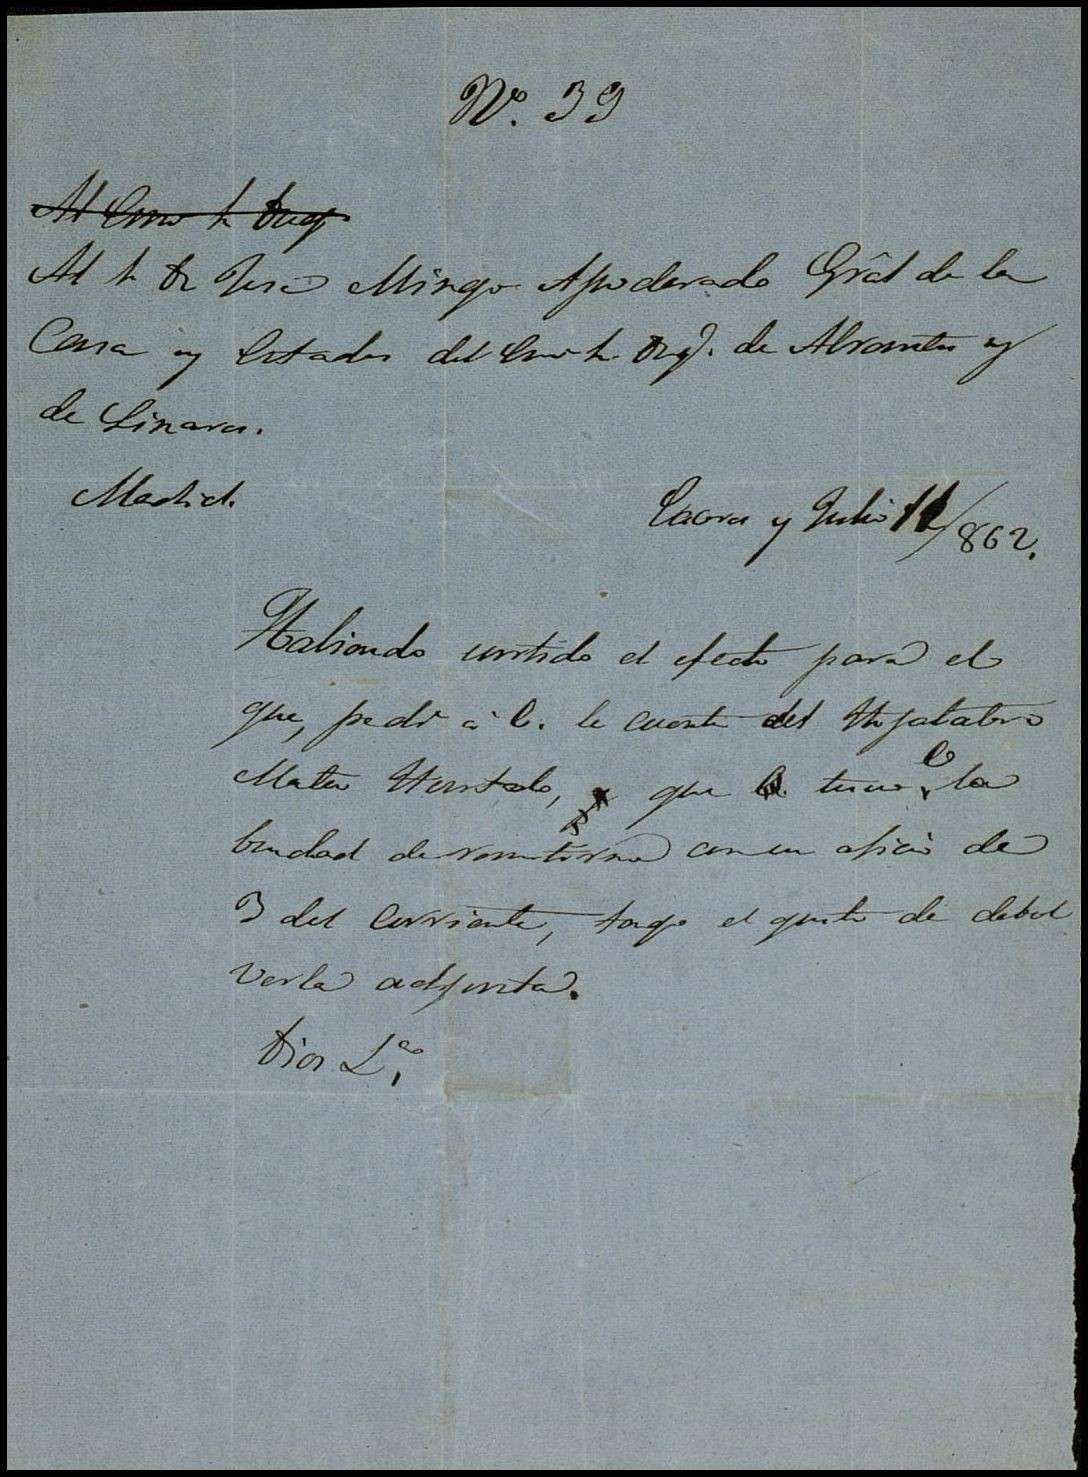 Nº. 39
Al Exmo Sr Duq
Al Sr Dn José Mingo Apoderado Grâl de la
Casa y Estados del Exmo Sr. Duq. de Abrantes y
de Linares.
Madrid.
Caceres y Julio 11/862.
Habiendo surtido el efecto para el
que, pedi á V. la cuenta del
Mateo Hurtado, que tuvo V. la
bondad de remitirme con su oficio de
3 del corriente, tengo el gusto de debol
verla adjunta.
Dios